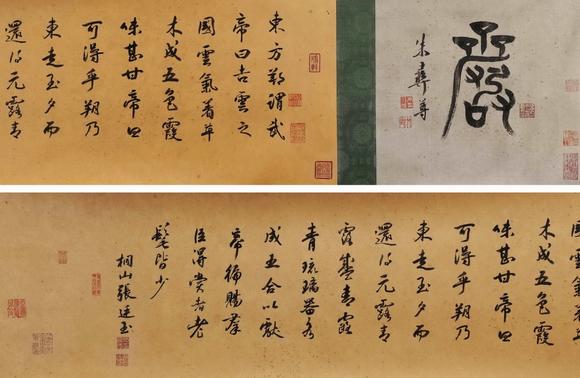 朱彝尊
東方朔謂武
帝曰吉雲之
國雲氣著草
木成五色霞
味甚甘帝曰
可得乎朔乃
東走至夕而
還得元露青
國雲氣著草
木成五色霞
味甚甘帝曰
可得乎朔乃
東走至夕而
還得元露青
露青露
青琉璃器各
成五合以獻
帝徧賜羣
臣得賞者老
髦皆少
桐山張廷玉